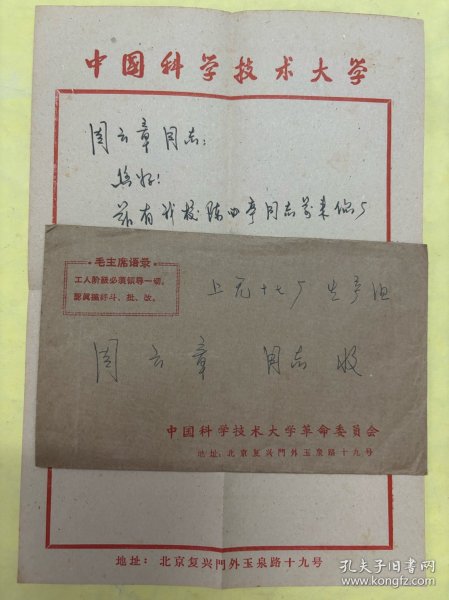 中国科学技术大学
周云章同志:
您好!
兹有我校陈四亭同志前来你厂
毛主席语录
工人阶级必须领导一切。
认真搞好斗、批、改。
上无十七厂 生产组
周云章 同志收
中国科学技术大学革命委员会
地址:北京复兴門外玉泉路十九号
地址:北京复兴門外玉泉路十九号
孔夫子旧书网